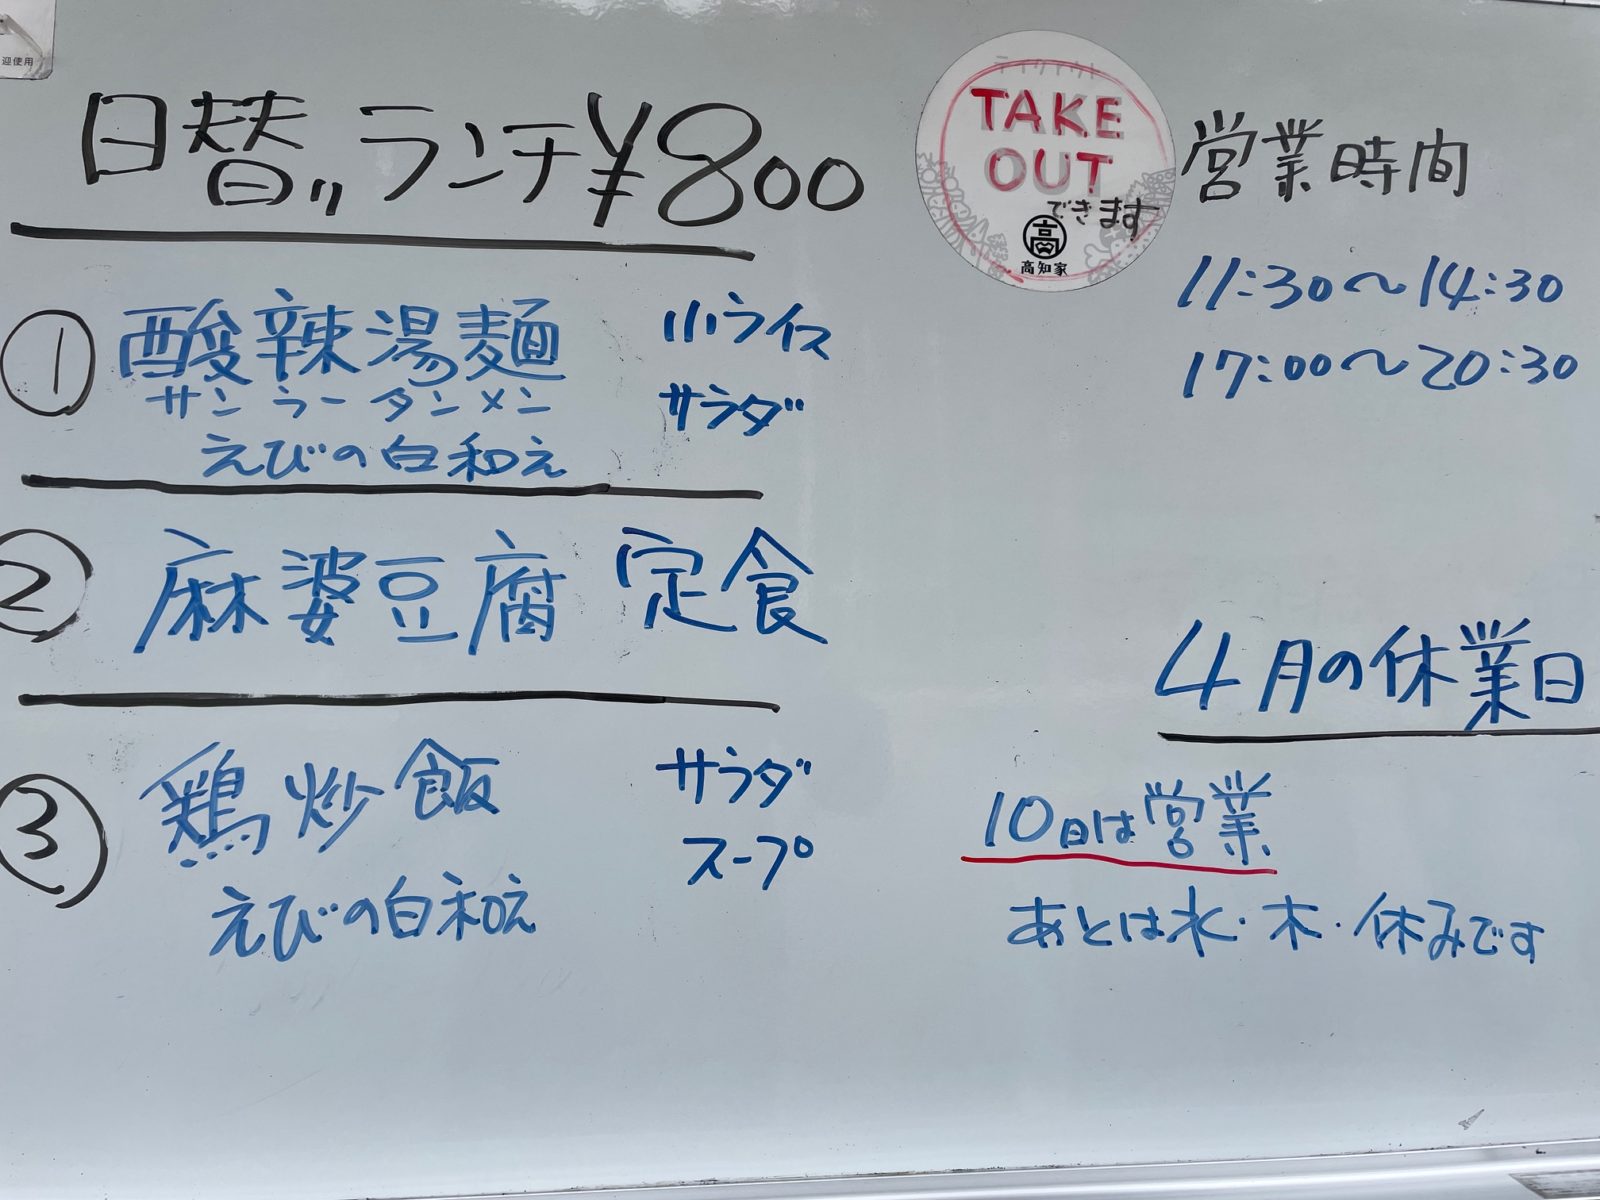 迎使用
日替りランチ¥800
① 酸辣湯麺 小ライス
サンラータンメン サラダ
えびの白和え
② 麻婆豆腐 定食
③ 鶏炒飯 サラダ
スープ
えびの白和え
テイクアウト
TAKE
OUT
できます
高知家
営業時間
11:30〜14:30
17:00〜20:30
4月の休業日
10日は営業
あとは水・木・休みです